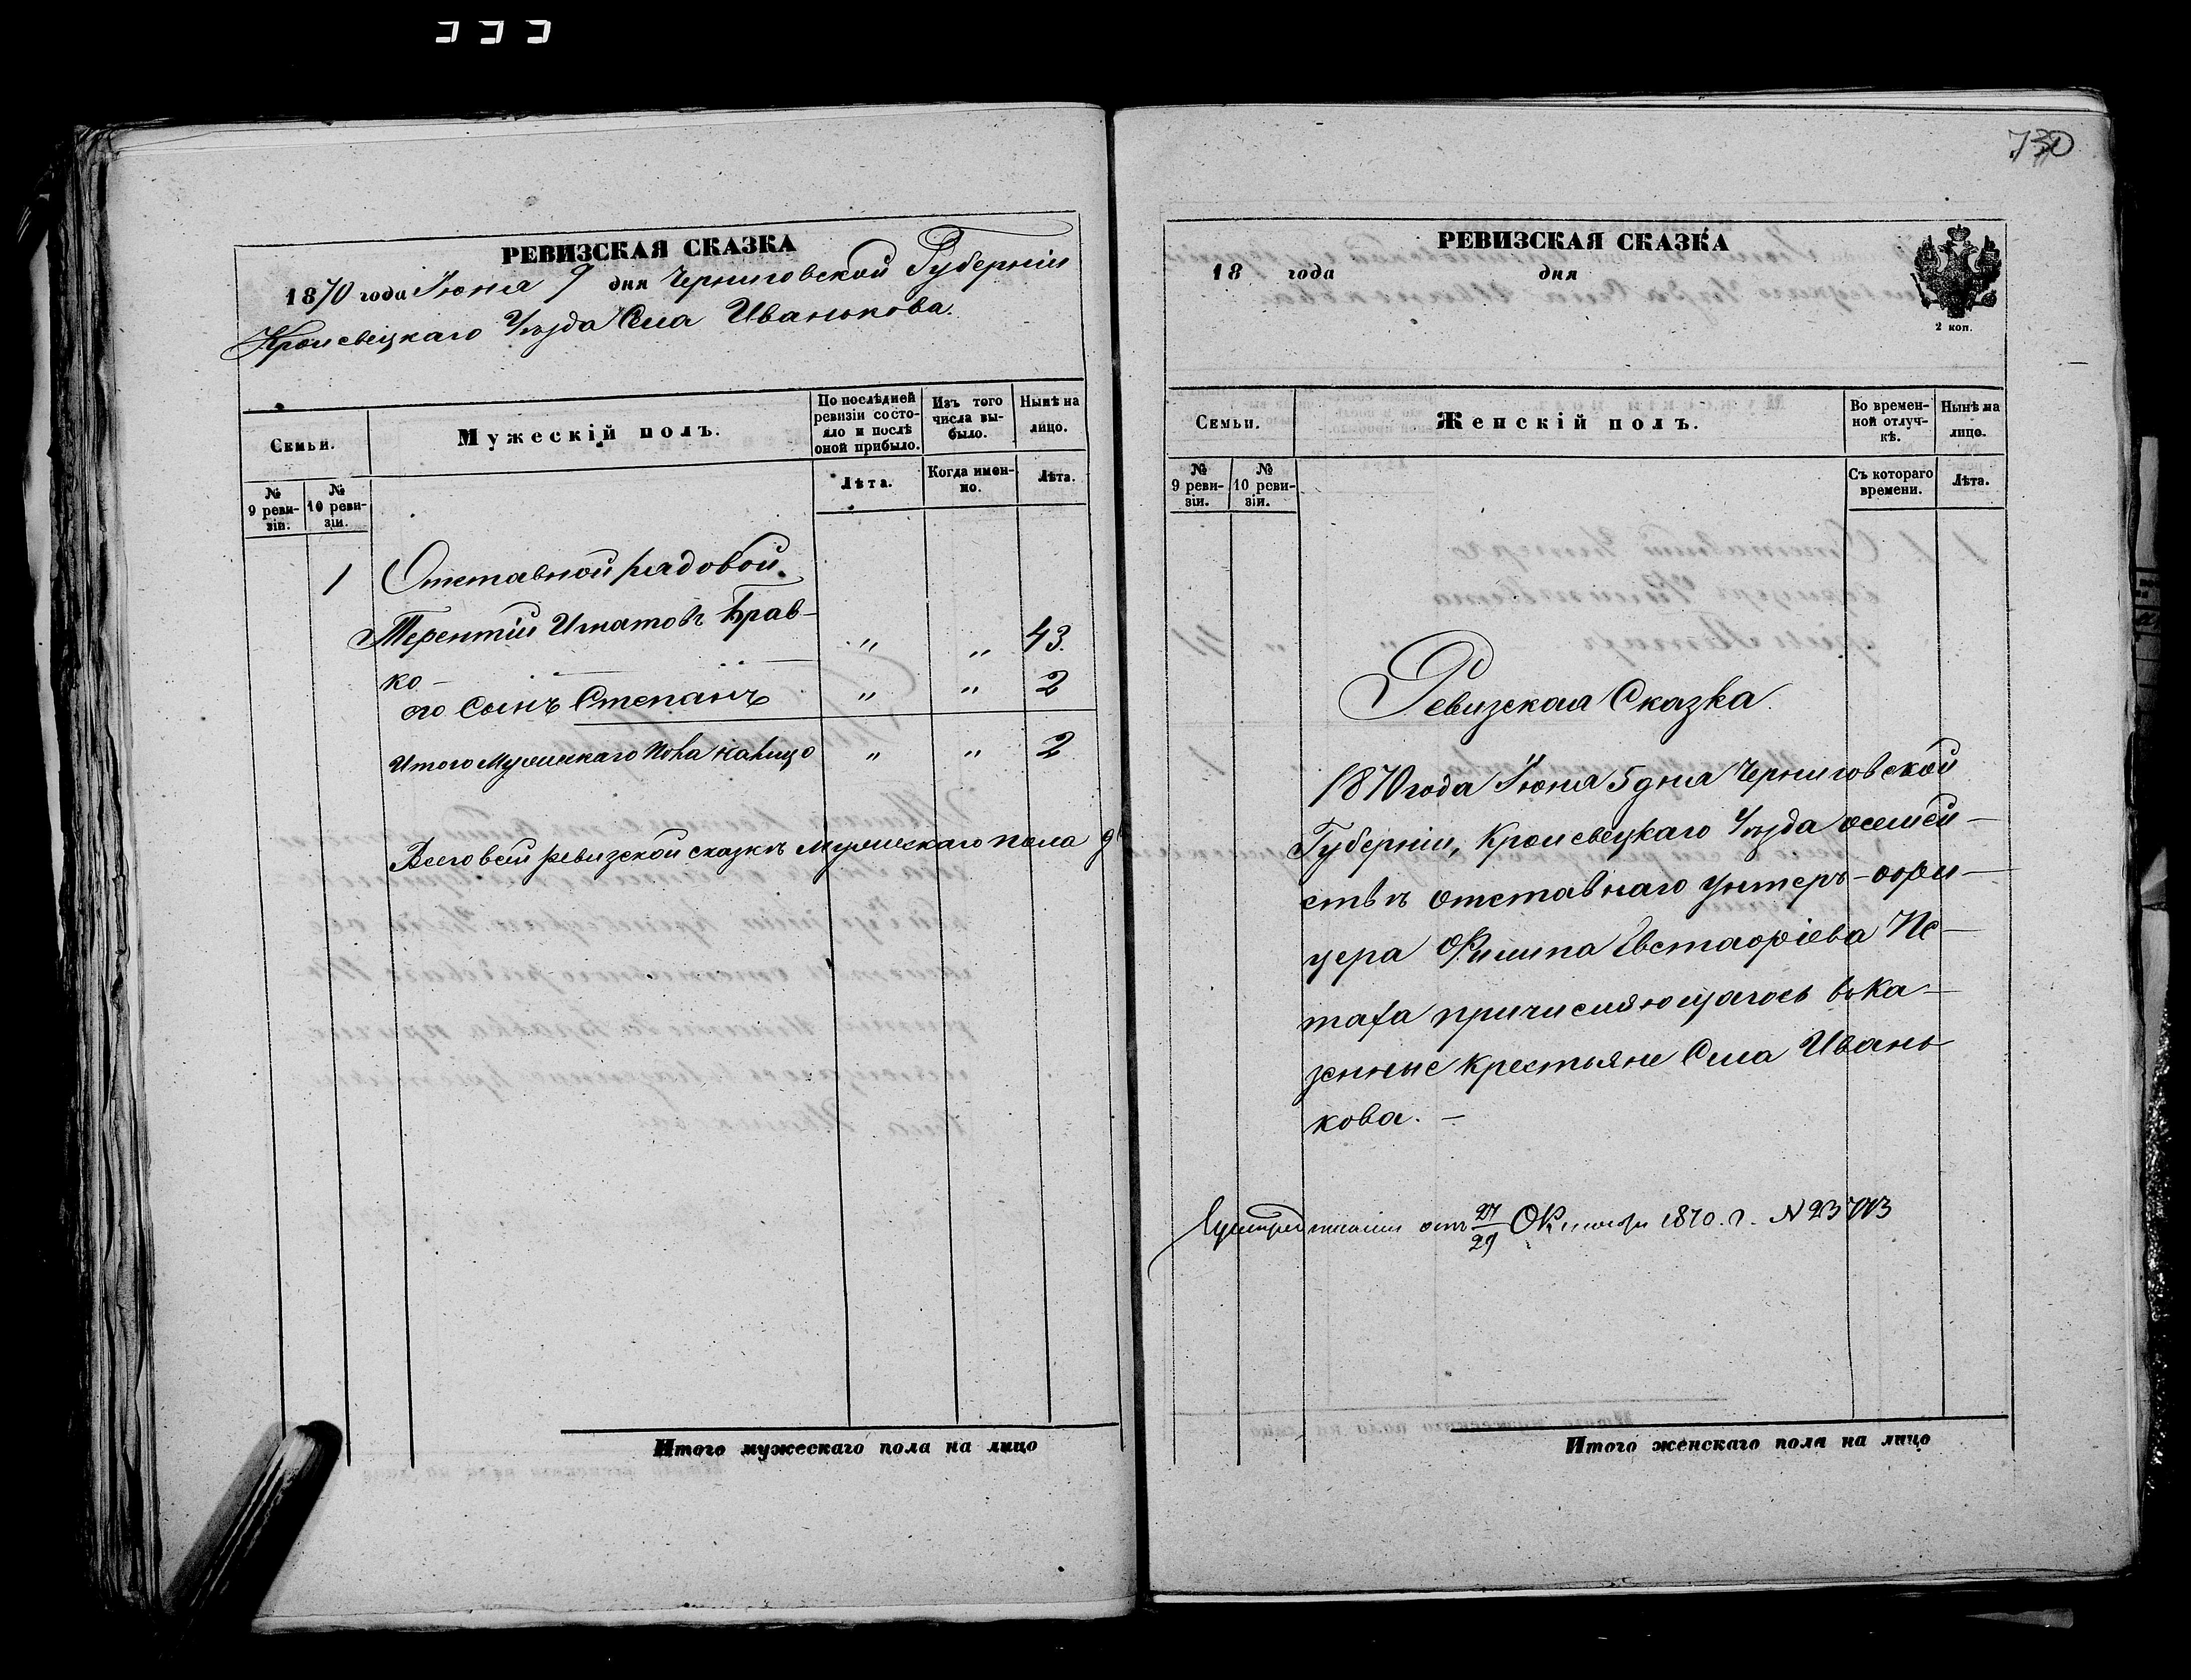 730
РЕВИЗСКАЯ СКАЗКА
1870 года Іюня 9 дня Черниговской Губерніи
Кролевецкаго Уѣзда Села Иванькова.
Семьи.
Мужескій полъ.
По послѣдней ревизіи состояло и послѣ оной прибыло.
Изъ того числа выбыло.
Нынѣ на лицо.
№ 9 ревизіи.
№ 10 ревизіи.
Лѣта.
Когда именно.
Лѣта.
1 Отставной рядовой
Терентій Игнатовъ Брав- „ „ 43.
ко-
его Сынъ Степанъ „ „ 2
Итого Мужескаго пола налицо „ „ 2
Всего въ сей ревизской сказкѣ мужескаго пола
Итого мужескаго пола на лицо
РЕВИЗСКАЯ СКАЗКА
18 года дня
2 коп.
Семьи.
Женскій полъ.
Во временной отлучкѣ.
Нынѣ на лицо.
№ 9 ревизіи.
№ 10 ревизіи.
Съ котораго времени.
Лѣта.
Ревизская Сказка.
1870 года Іюня 5 дня Черниговской
Губерніи, Кролевецкаго Уѣзда о семей-
ствѣ отставнаго унтеръ-офи-
цера Филипа Евстафіева По-
таха причисляющагося въ ка-
зенные крестьяне Села Ивань-
кова. -
отъ 27/29 Октября 1870. г. №
Итого женскаго пола на лицо